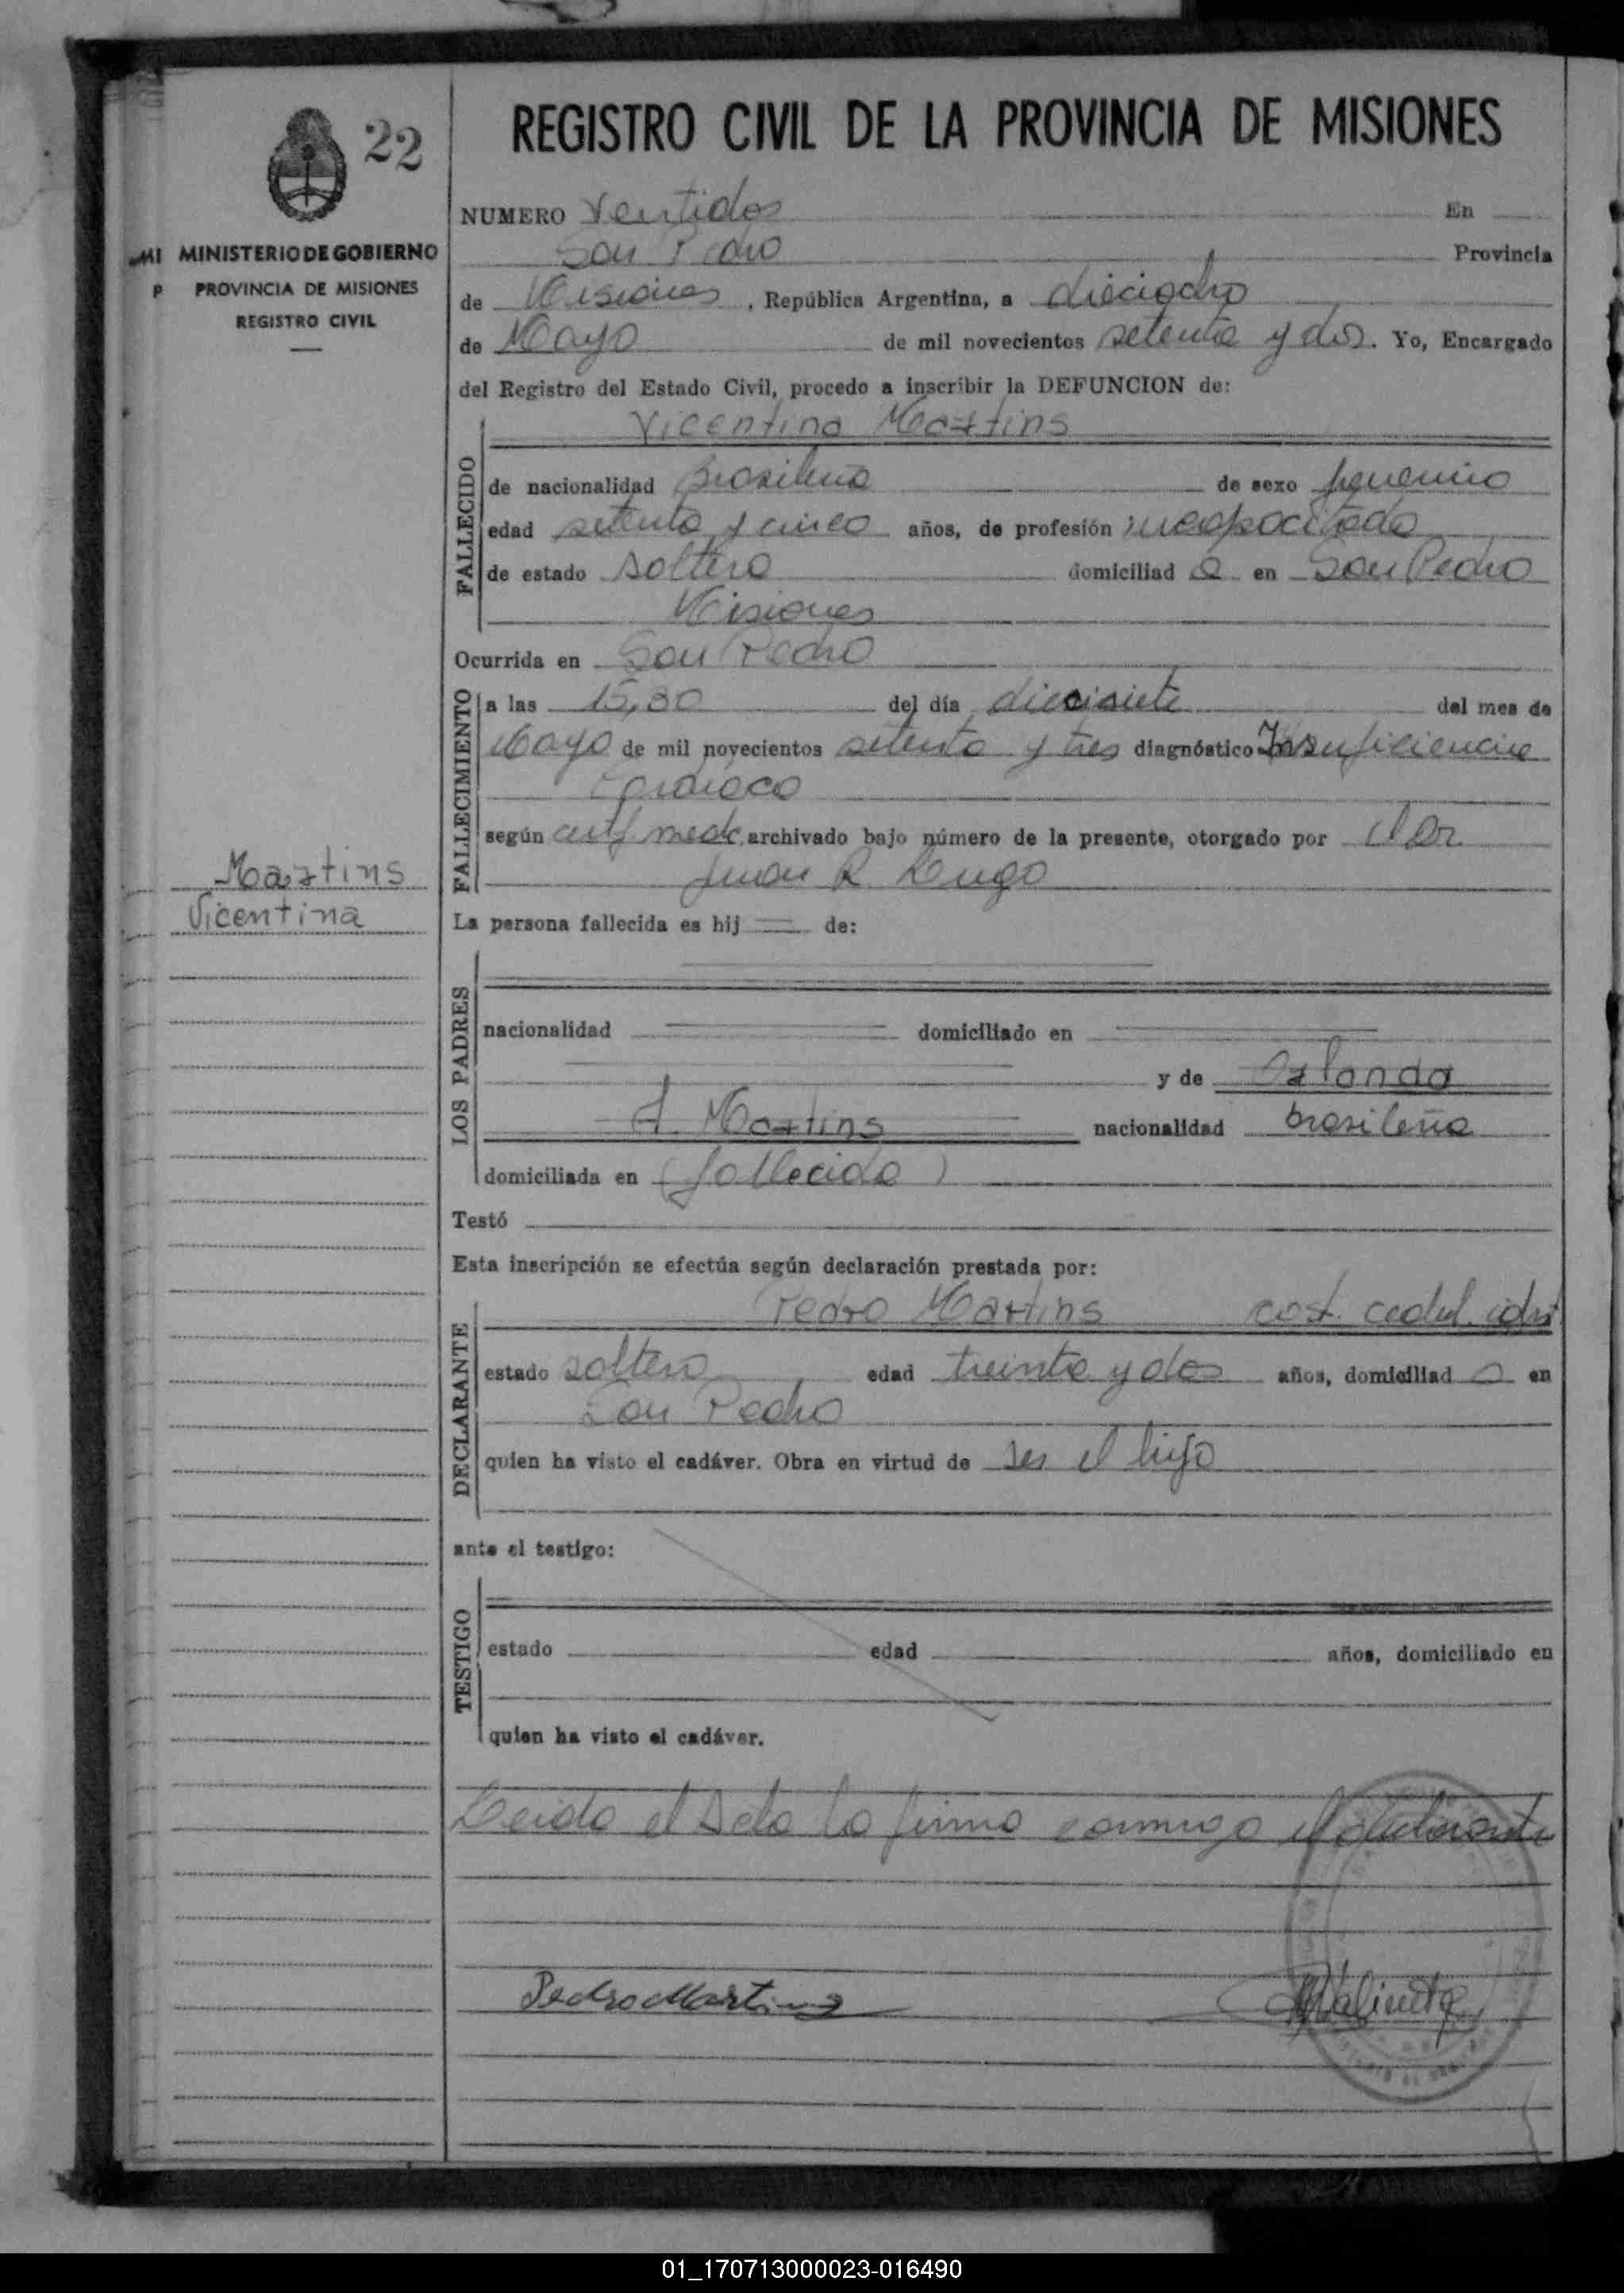 22
REGISTRO CIVIL DE LA PROVINCIA DE MISIONES
MI MINISTERIO DE GOBIERNO
P PROVINCIA DE MISIONES
REGISTRO CIVIL
NUMERO Ventidos En
San Pedro Provincia
de Misiones, República Argentina, a dieciocho
de Mayo de mil novecientos setenta y dos. Yo, Encargado
del Registro del Estado Civil, procedo a inscribir la DEFUNCION de:
Vicentina Martins
FALLECIDO
de nacionalidad Brasileña de sexo femenino
edad setenta y cinco años, de profesión incapacitada
de estado soltera domiciliad a en San Pedro
Misiones
Ocurrida en San Pedro
FALLECIMIENTO
a las 15,30 del día diecisiete del mes de
Mayo de mil novecientos setenta y tres diagnóstico Insuficiencia
según cert med. archivado bajo número de la presente, otorgado por el Dr
Juan R. Lugo
Martins
Vicentina
La persona fallecida es hij de:
LOS PADRES
nacionalidad domiciliado en
y de
Martins nacionalidad brasileña
domiciliada en (fallecida)
Testó
Esta inscripción se efectúa según declaración prestada por:
DECLARANTE
Pedro Martins
estado soltero edad treinta y dos años, domiciliad o en
San Pedro
quien ha visto el cadáver. Obra en virtud de ser el hijo
ante el testigo:
TESTIGO
estado edad años, domiciliado en
quien ha visto el cadáver.
Leida el Acta la firma conmigo el declarante
Pedro Martins
01_170713000023-016490